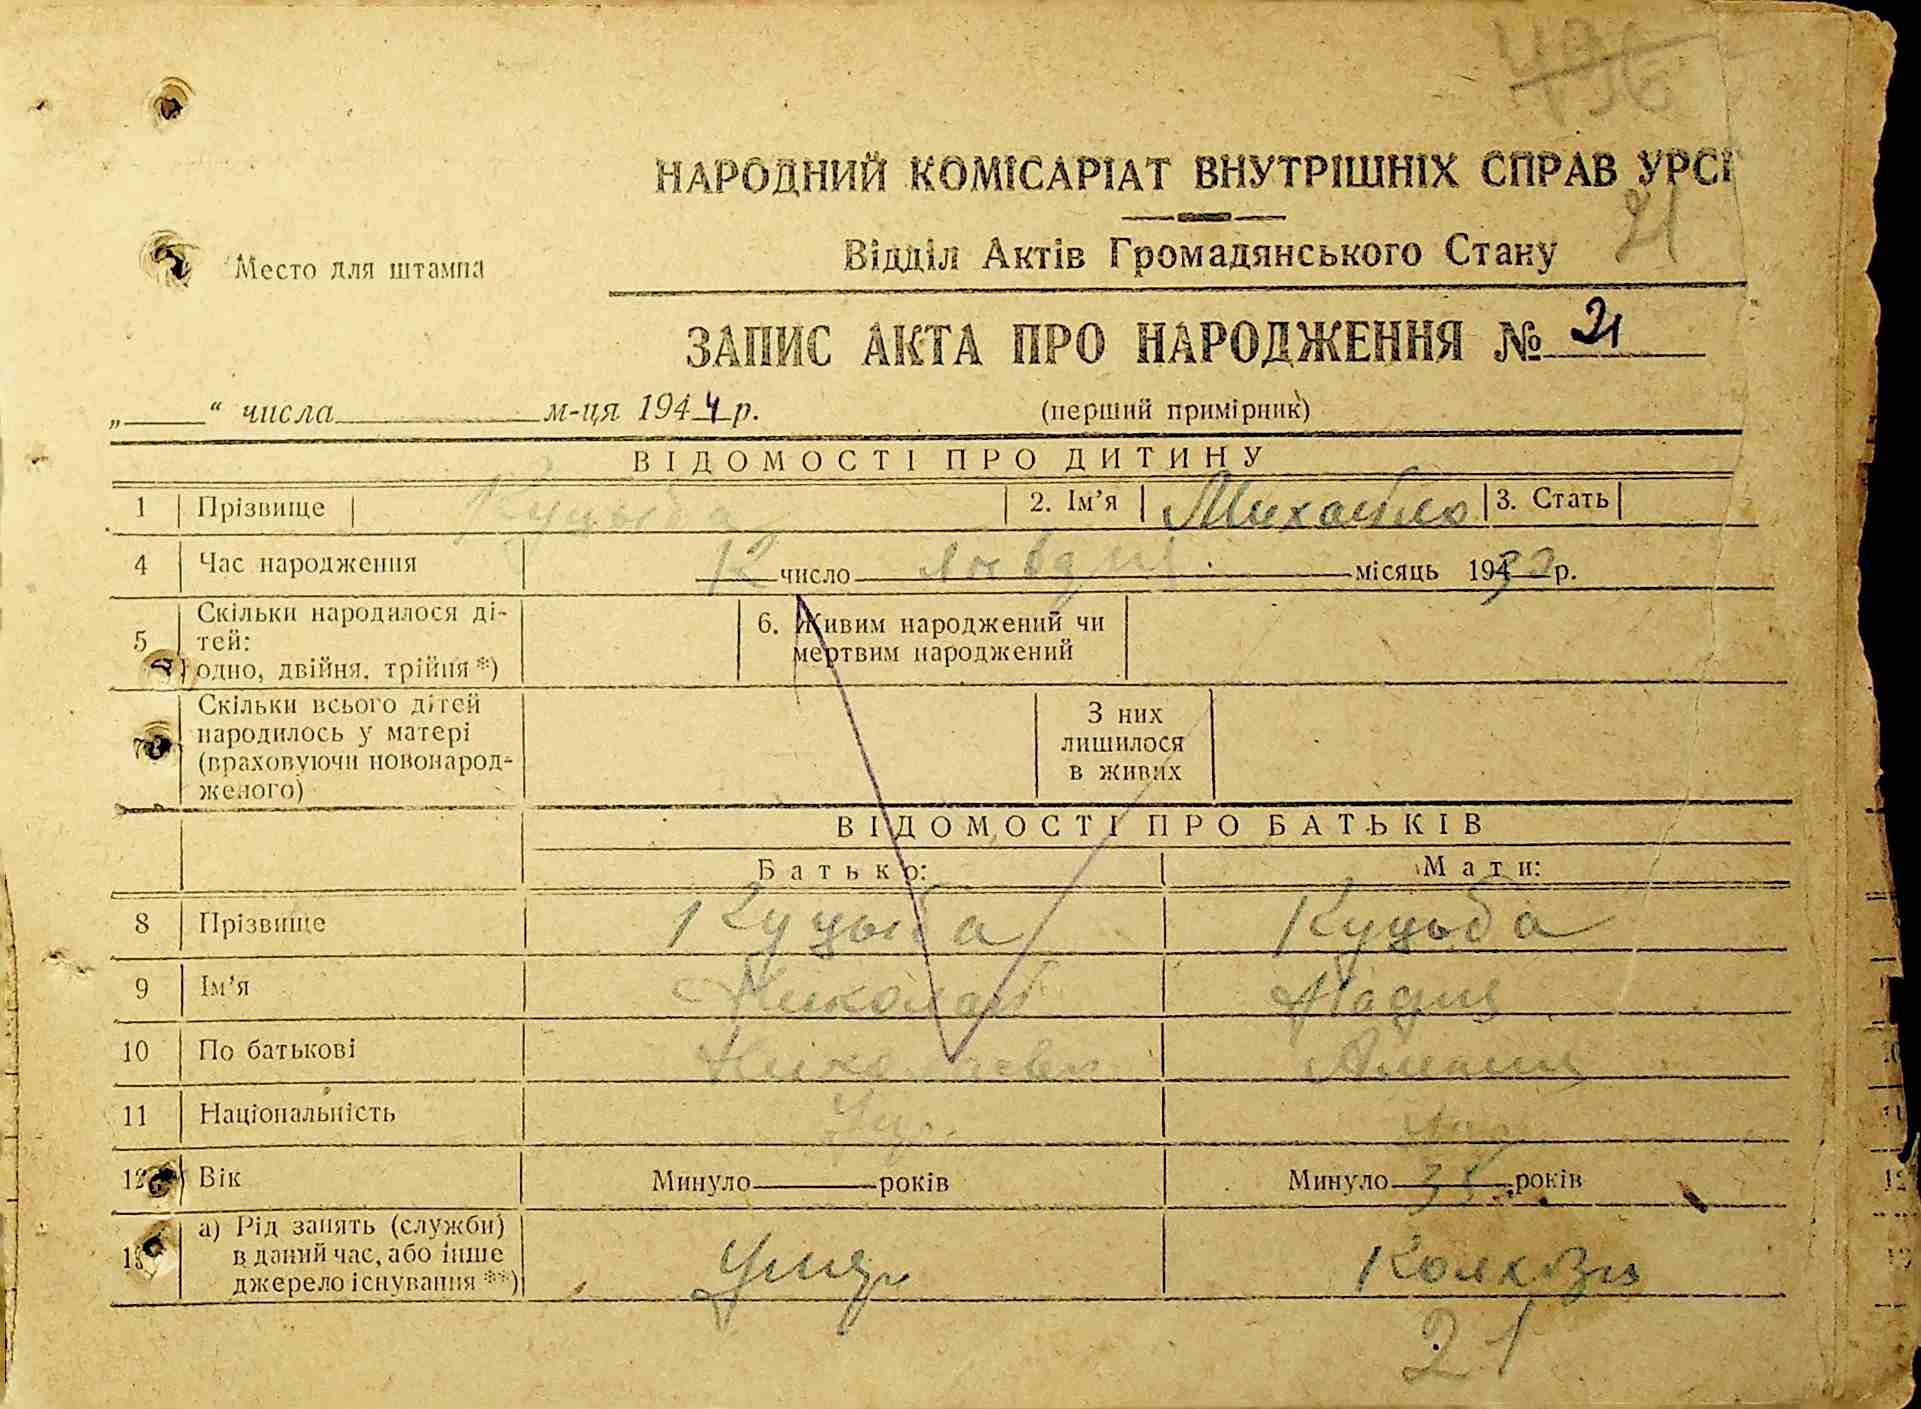 436
НАРОДНИЙ КОМІСАРІАТ ВНУТРІШНІХ СПРАВ УРСР
21
Место для штампа
Відділ Актів Громадянського Стану
ЗАПИС АКТА ПРО НАРОДЖЕННЯ № 21
„ “ числа м-ця 1944 р. (перший примірник)
ВІДОМОСТІ ПРО ДИТИНУ
1 Прізвище Куцыба 2. Ім’я Михайло 3. Стать
4 Час народження 12 число місяць 1930 р.
5 Скільки народилося ді-
тей:
одно, двійня, трійня *)
6. Живим народжений чи
мертвим народжений
7 Скільки всього дітей
народилось у матері
(враховуючи новонарод-
женого)
З них
лишилося
в живих
ВІДОМОСТІ ПРО БАТЬКІВ
Батько: Мати:
8 Прізвище Куцыба Куцыба
9 Ім’я Николай
10 По батькові
11 Національність Укр. Укр.
12 Вік Минуло років Минуло 35 років
13 а) Рід занять (служби)
в даний час, або інше
джерело існування **)
Умер Колхоз
21